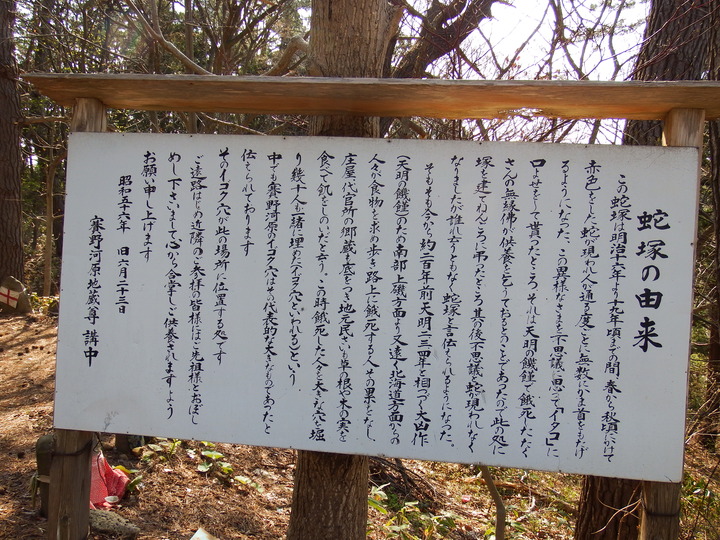 蛇塚の由来
この蛇塚は明治十六年より十九年頃までの間、春から秋頃にかけて
赤色をした蛇が現われ人が通る度ごとに無数にかま首をもたげ
るようになった、この異様なさまを不思議に思って「イタコ」に
口よせをして貰ったところ、それは天明の飢饉で餓死したたく
さんの無縁佛が供養を乞うておるとのことであったので此の処に
塚を建てねんごろに弔ったところ其の後不思議に蛇が現われなく
なりましたが誰れ言うともなく蛇塚と言い伝えられるようになった。
そもそも今から約二百年前天明二三四年と相つづく大凶作
(天明の飢饉)のため南部上磯方面より又遠く北海道方面からの
人々が食物を求め歩き路上に餓死する人その累をなし、
庄屋、代官所の郷蔵も底をつき地元民さいも草の根や木の実を
食べて飢をしのいだと言う。この時餓死した人々を大きな穴を堀
り幾十人と一緒に埋めた穴(イゴク穴といわれる)という
中でも賽野河原のイゴク穴はその代表的な大きなものであったと
伝えられております
そのイゴク穴が此の場所に位置する処です
ご遠路はじめ近隣のご参拝の皆様にはご先祖様とおぼし
めし下さいまして心から合掌しご供養されますよう
お願い申し上げます
昭和五十六年 旧六月二十三日
賽野河原地蔵尊 講中